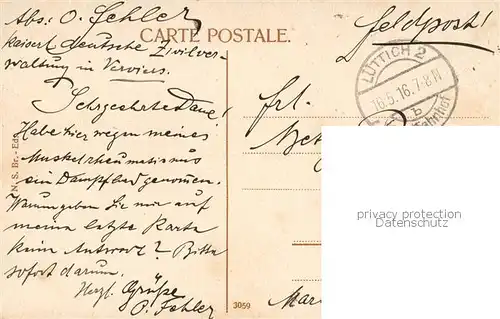 Abs: O. Fehler
kaiserl deutsche Zivilver-
waltung in Verviers.
CARTE POSTALE.
Feldpost!
LÜTTICH 2
16.5.16.7-8.N
b
Bahnhof
Sehrgeehrte Dame!
Habe hier wegen meines
Muskelrheumatismus
ein Dampfbad genommen.
Warum geben Sie mir auf
meine letzte Karte
keine Antwort? Bitte
sofort darum.
Herzl. Grüße
O. Fehler
Frl.
Mar
N. S. Br. -
3059
privacy protection
Datenschutz